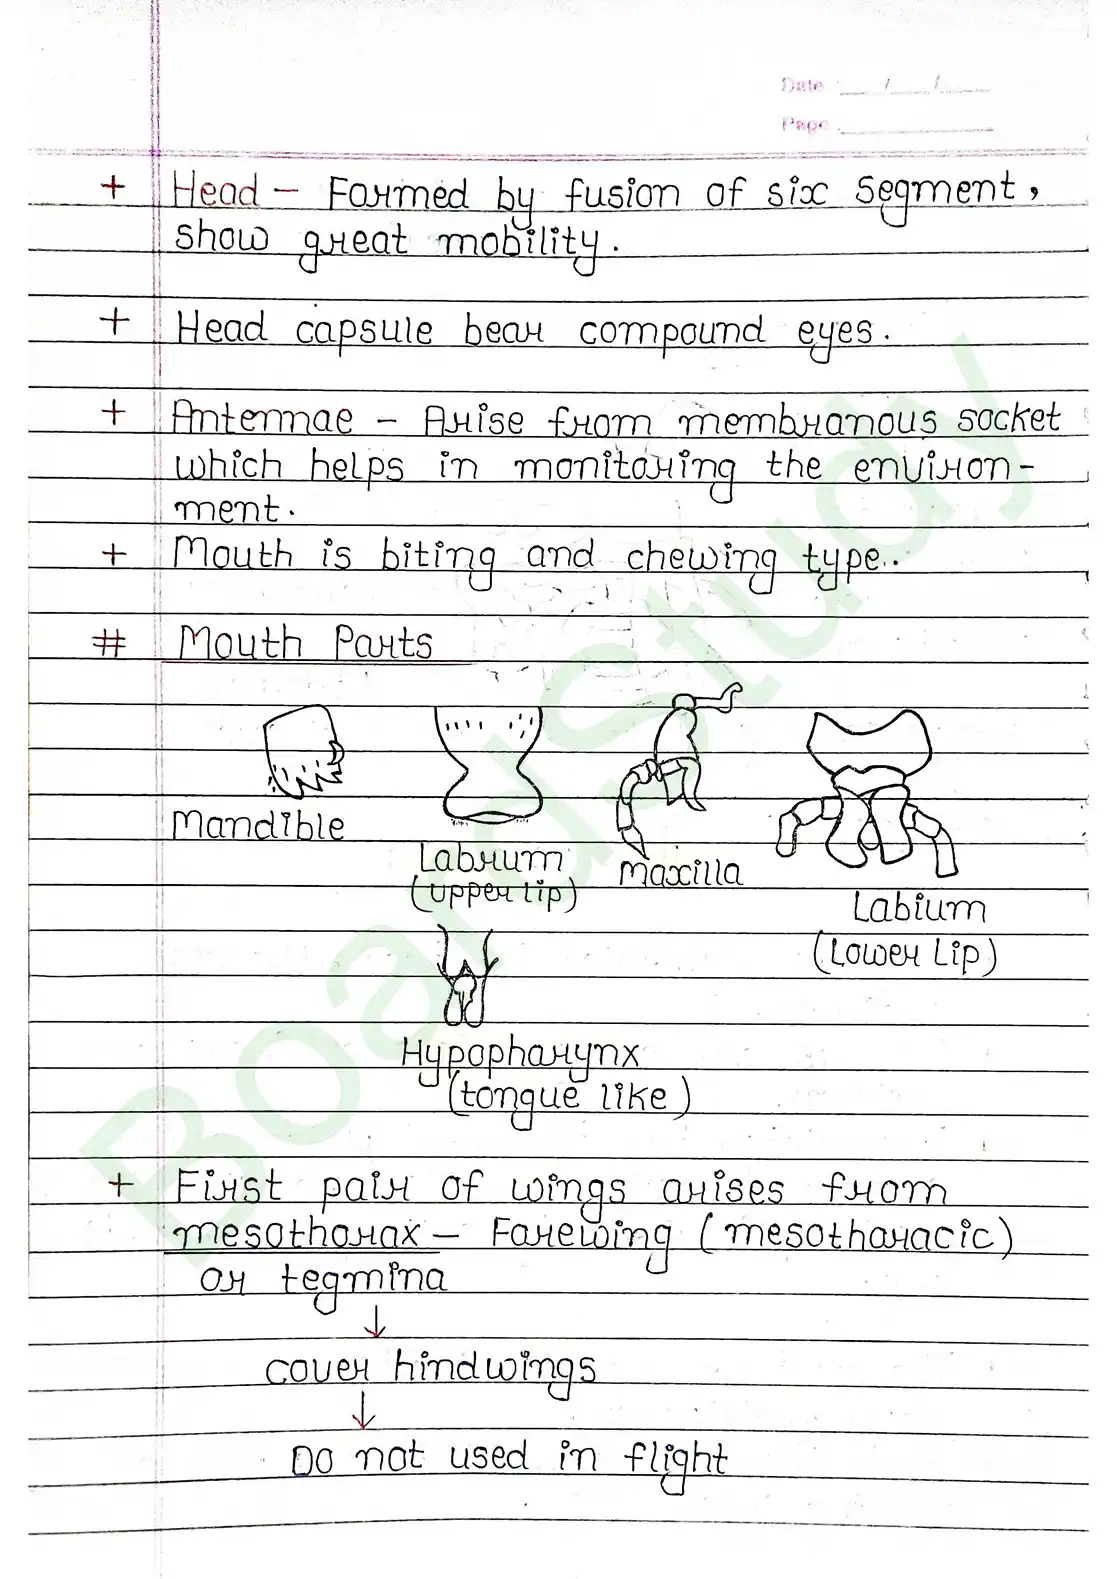 Date : __/__/__
Page __
+ Head – Formed by fusion of six segment,
show great mobility.
+ Head capsule bear compound eyes.
+ Antennae – Arise from membranous socket
which helps in monitoring the environ-
ment.
+ Mouth is biting and chewing type..
# Mouth Parts
Mandible
Labrum
(upper lip)
Maxilla
Labium
(Lower Lip)
Hypopharynx
(tongue like)
+ First pair of wings arises from
mesothorax – Forewing (mesothoracic)
or tegmina
↓
cover hindwings
↓
Do not used in flight
BoardStudy